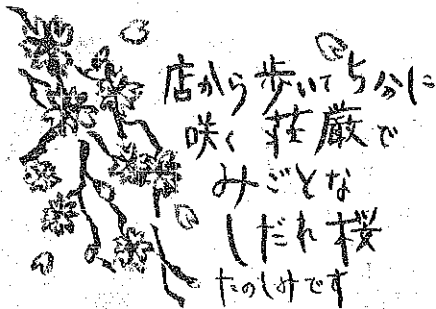 店から歩いて5分に
咲く荘厳で
みごとな
しだれ桜
たのしみです